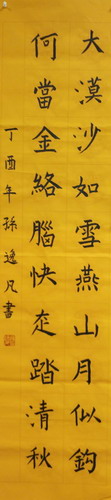 大漠沙如雪燕山月似鈎
何當金絡腦快走踏清秋
丁酉年孫逸凡書